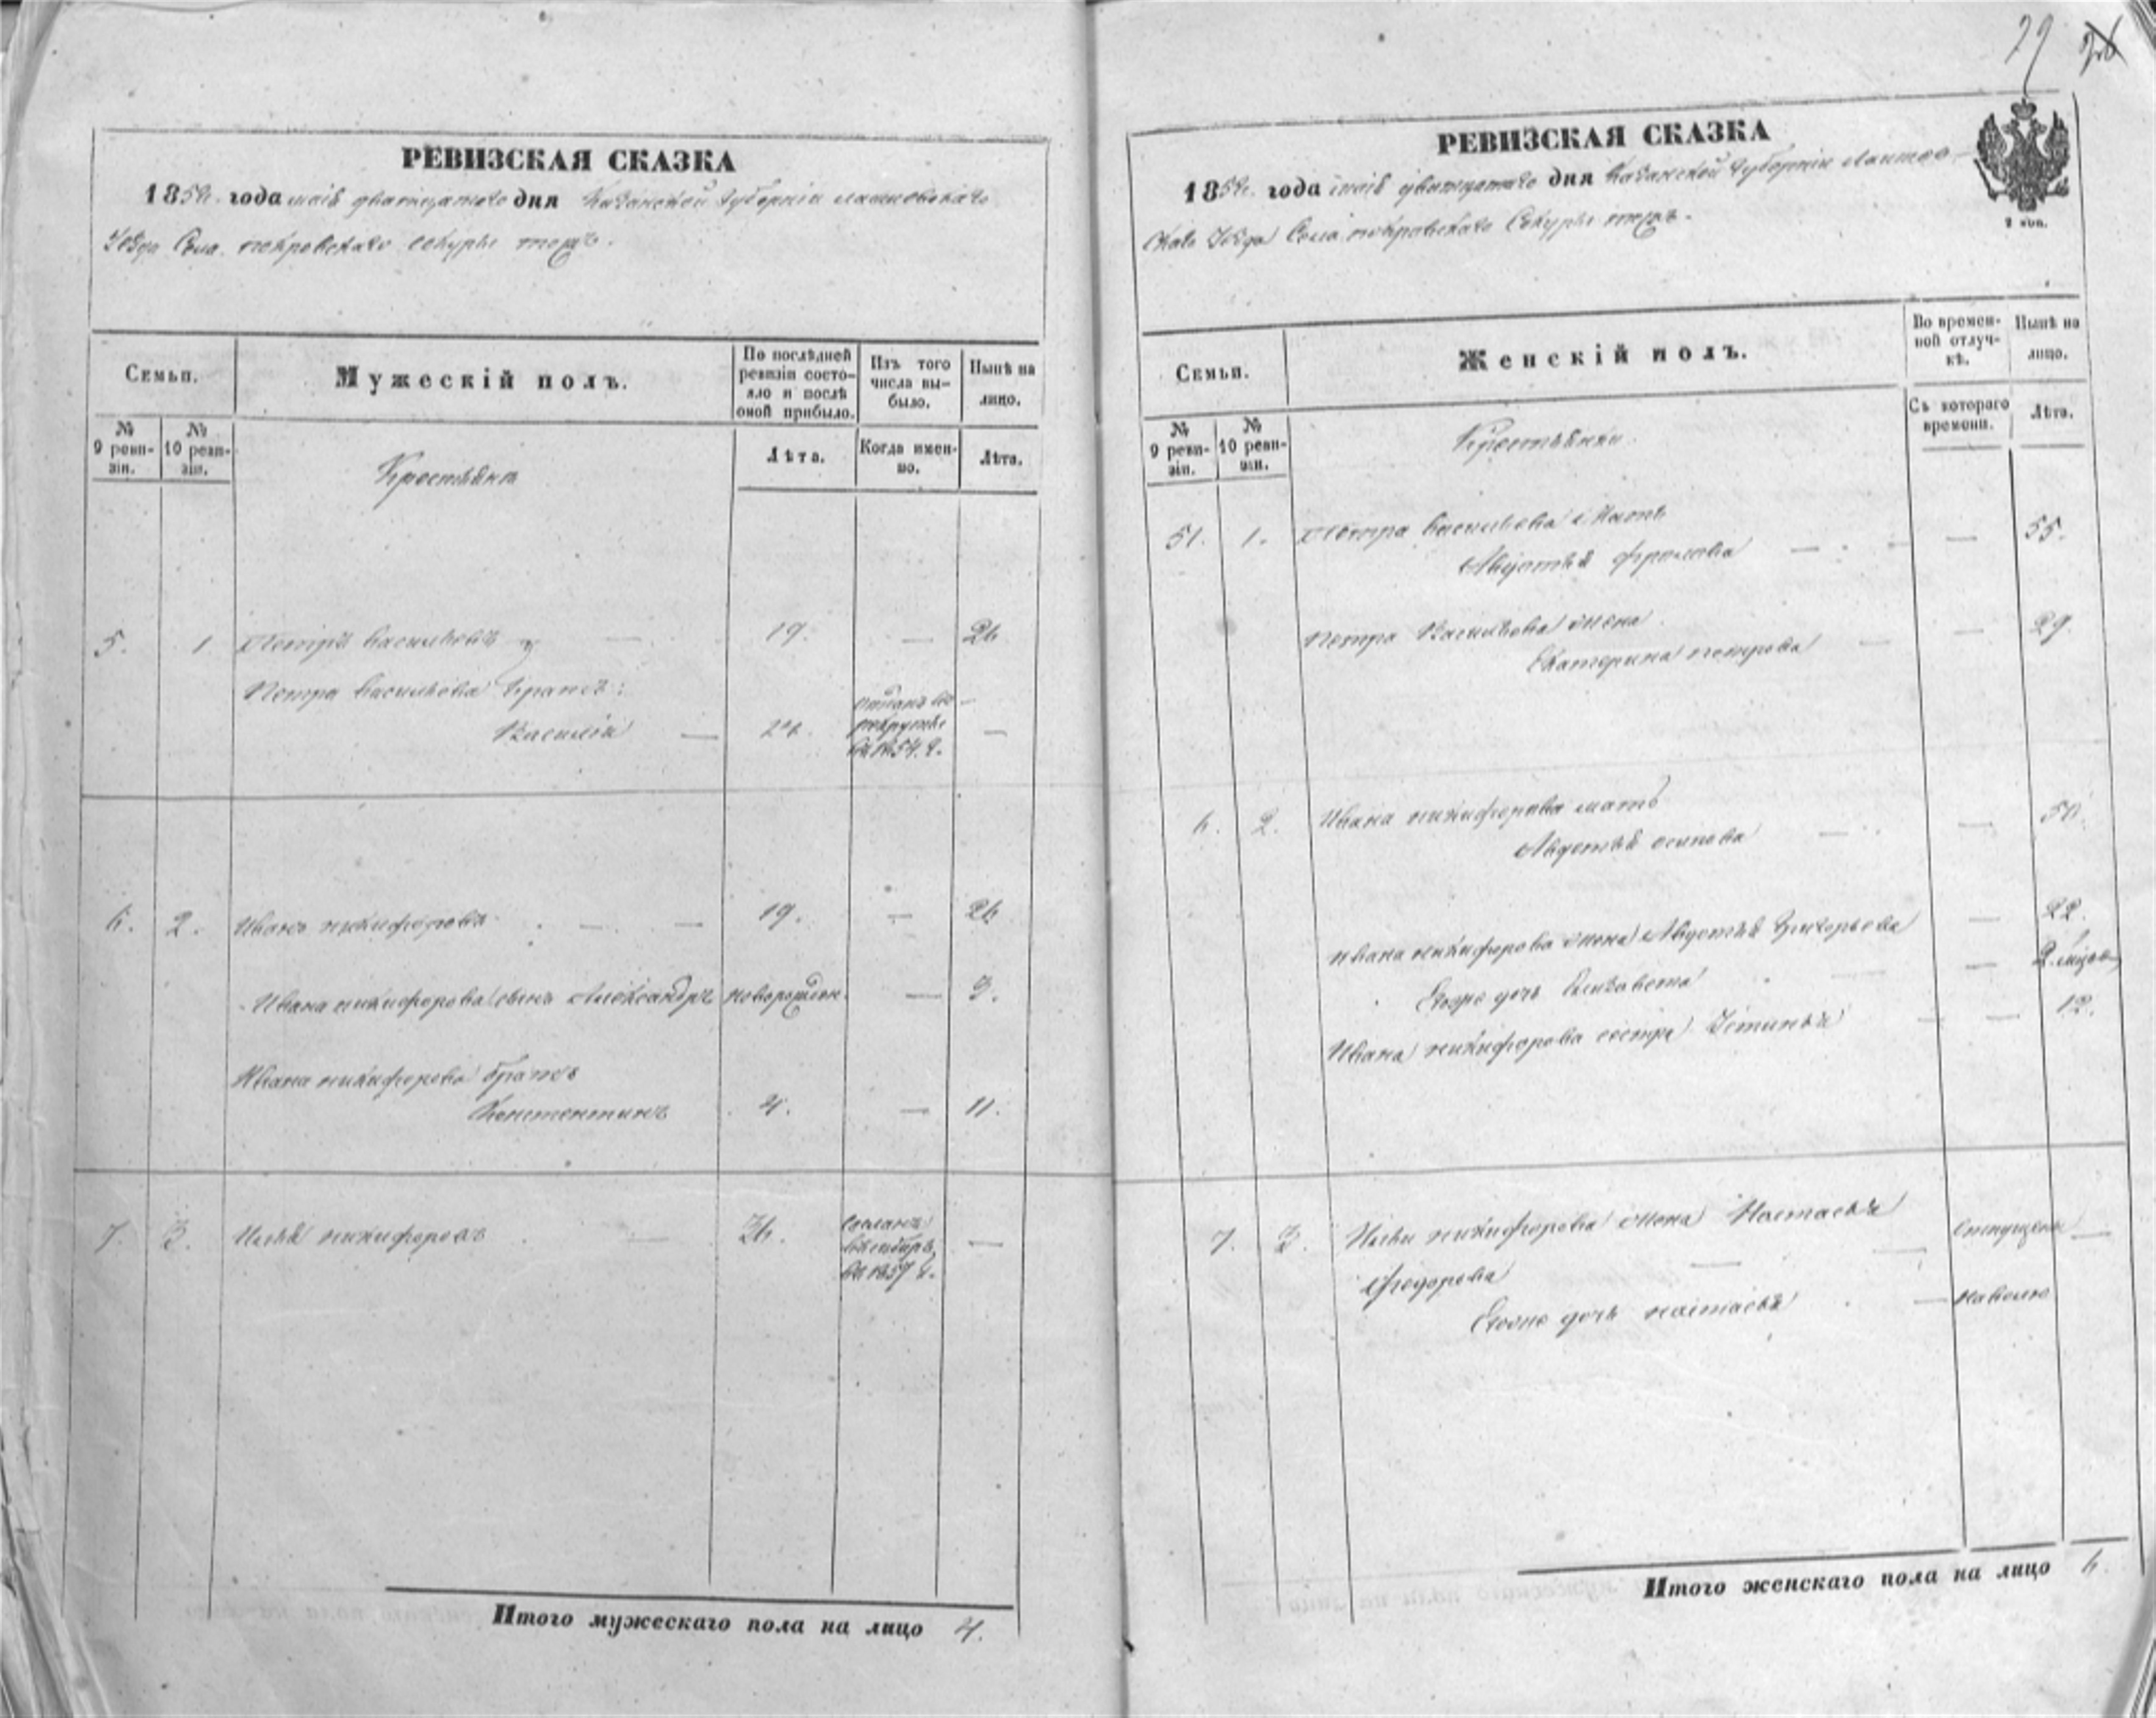 29
РЕВИЗСКАЯ СКАЗКА
1858. года маія дватцатаго дня Казанской Губерніи лаишевскаго
Уѣзда Села покровскаго
Семьи.
Мужескій полъ.
По послѣдней ревизіи состояло и послѣ оной прибыло.
Изъ того числа выбыло.
Нынѣ на лицо.
№ 9 ревизіи.
№ 10 ревизіи.
Крестьяня
Лѣта.
Когда именно.
Лѣта.
5. 1 Петръ васильевъ — 19. — 26
Петра васильева братъ:
Василій — 24. отданъ въ рекруты въ 1854. г. —
6. 2. Иванъ никифоровъ — 19. — 26
Ивана никифорова сынъ Александръ новорожден. — 3.
Ивана никифорова братъ
Констентинъ 4. — 11.
7. 3. Илья никифоровъ — 36. Сосланъ в 1857 г. —
Итого мужескаго пола на лицо 4.
РЕВИЗСКАЯ СКАЗКА
1858. года маія дватцатаго дня Казанской Губерніи Лаишев-
скаго Уѣзда Села покровскаго
Семьи.
Женскій полъ.
Во временной отлучкѣ.
Нынѣ на лицо.
№ 9 ревизіи.
№ 10 ревизіи.
Крестьянки.
Съ котораго времени.
Лѣта.
51. 1. Петра васильева Мать
Авдотья фролова — — 55.
Петра Васильева жена
Екатерина петрова — — 29.
6. 2. Ивана никифорова мать
Авдотья осипова — — 50.
Ивана никифорова жена Авдотья Григорьева — 22.
Евоже дочь Елизавета — 2.
Ивана никифорова сестра Устинья — — 12.
7. 3. Ильи никифорова жена Настасья
федорова — — отпущены —
Евоже дочь настасья — наволю
Итого женскаго пола на лицо 6.